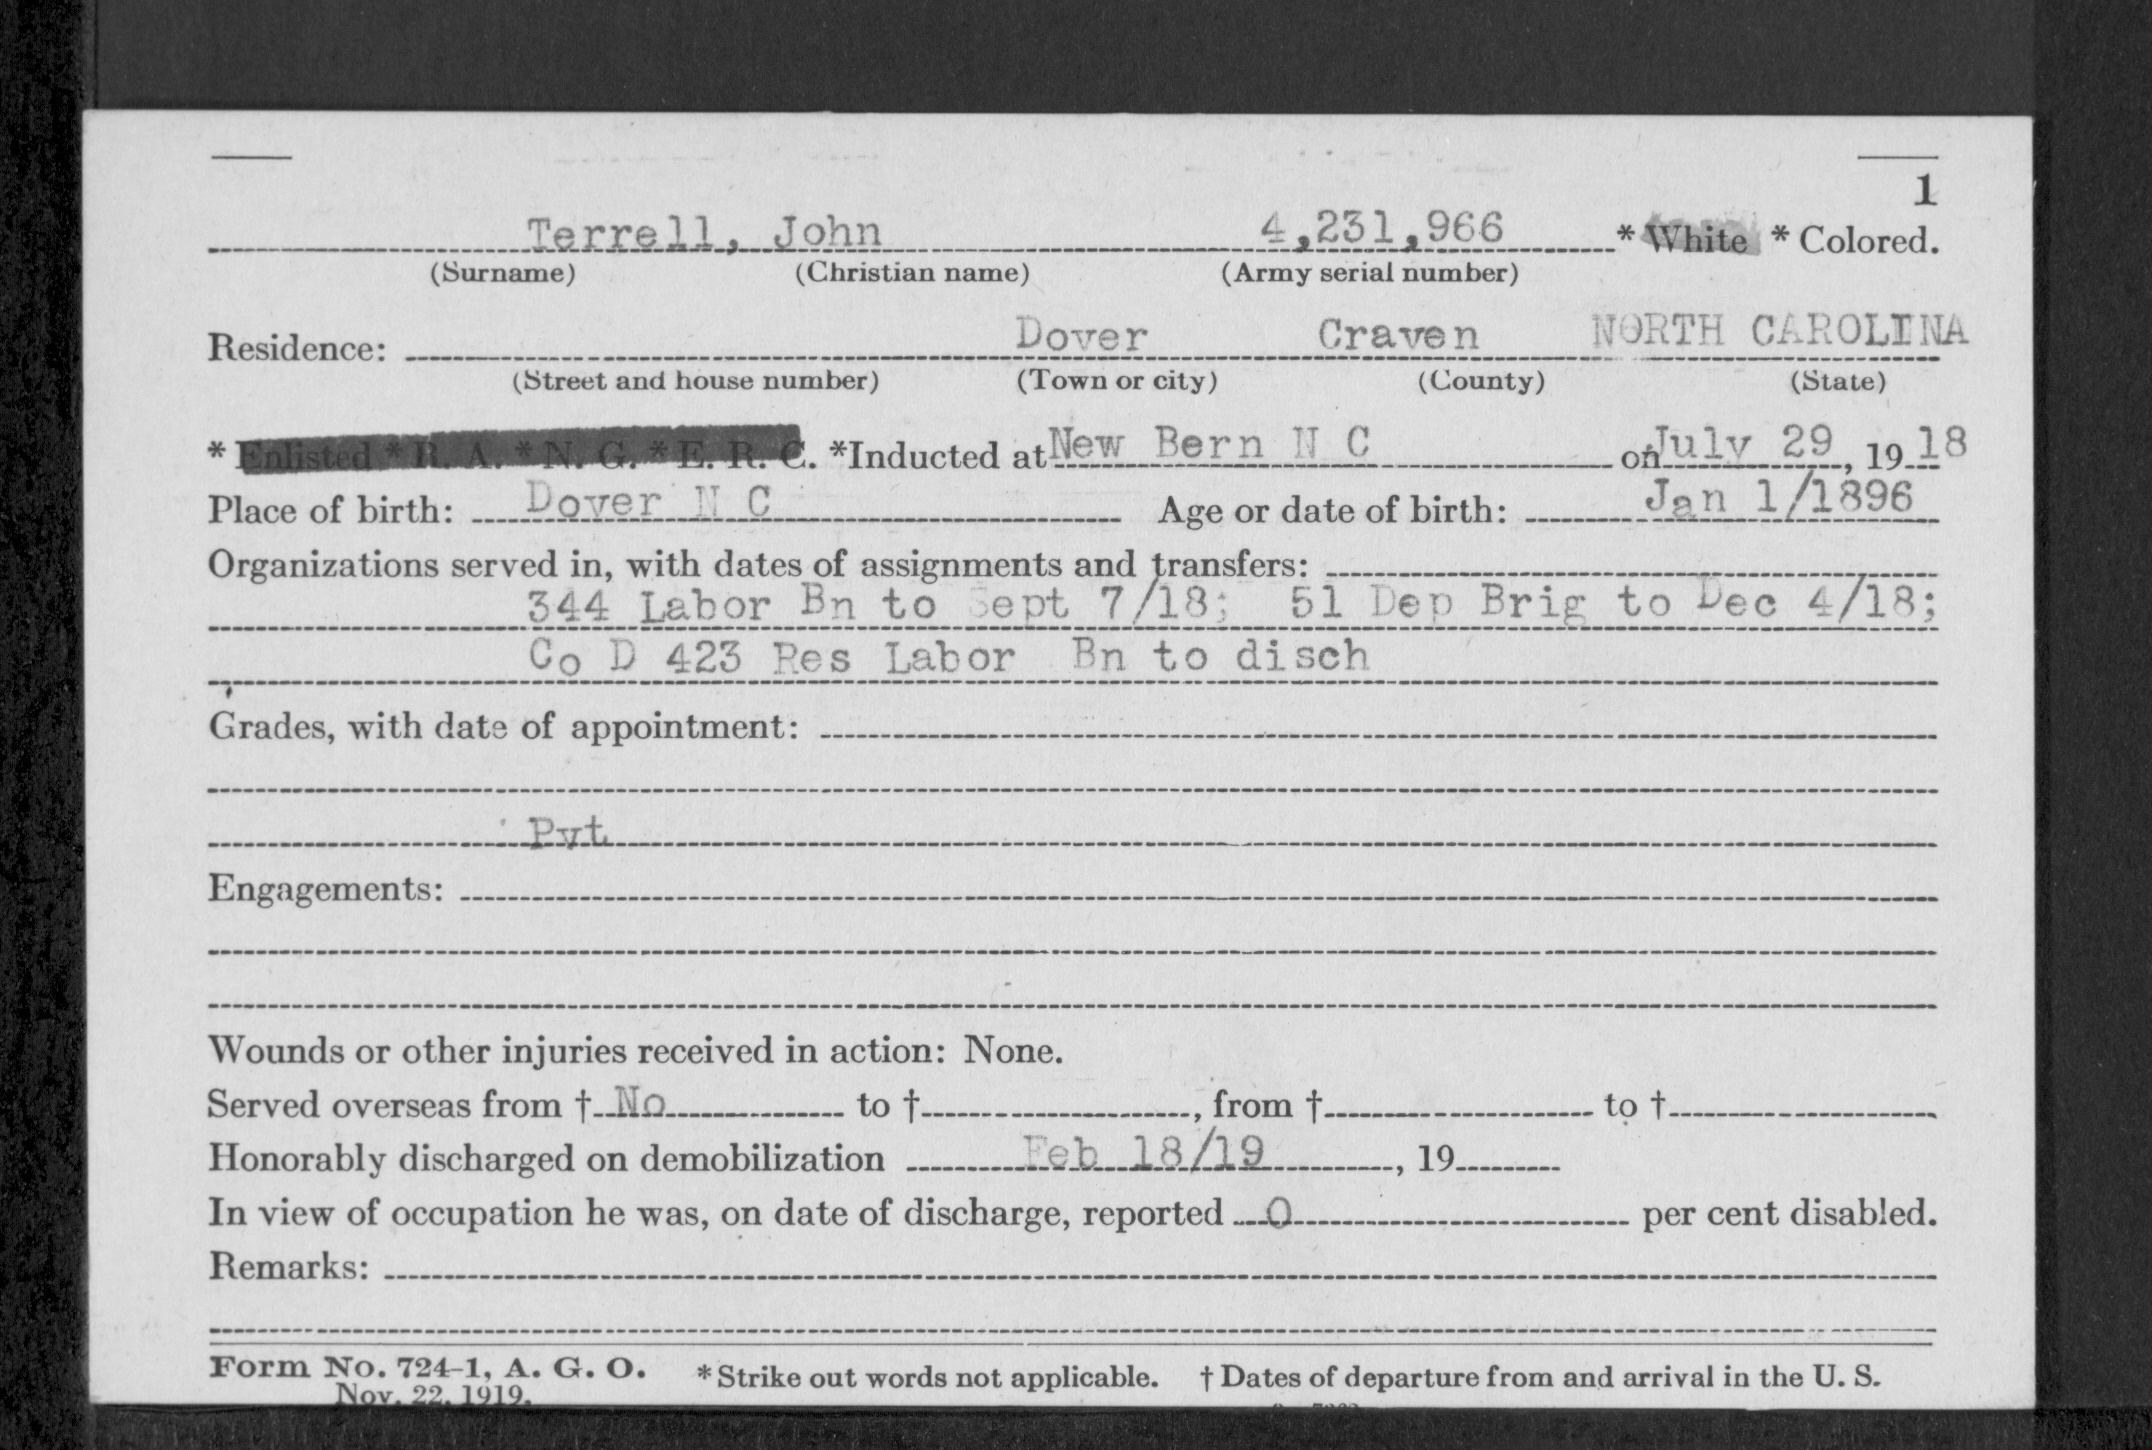 1
Terrell, John 4,231,966 * White * Colored.
(Surname) (Christian name) (Army serial number)
Residence: Dover Craven NORTH CAROLINA
(Street and house number) (Town or city) (County) (State)
* Enlisted * R. A. * N. G. * E. R. C. *Inducted at New Bern N C on July 29, 1918
Place of birth: Dover N C Age or date of birth: Jan 1/1896
Organizations served in, with dates of assignments and transfers:
344 Labor Bn to Sept 7/18; 51 Dep Brig to Dec 4/18;
Co D 423 Res Labor Bn to disch
Grades, with date of appointment:
Pvt
Engagements:
Wounds or other injuries received in action: None.
Served overseas from † No to †, from † to †
Honorably discharged on demobilization Feb 18/19, 19
In view of occupation he was, on date of discharge, reported 0 per cent disabled.
Remarks:
Form No. 724-1, A. G. O. * Strike out words not applicable. † Dates of departure from and arrival in the U. S.
Nov. 22, 1919.